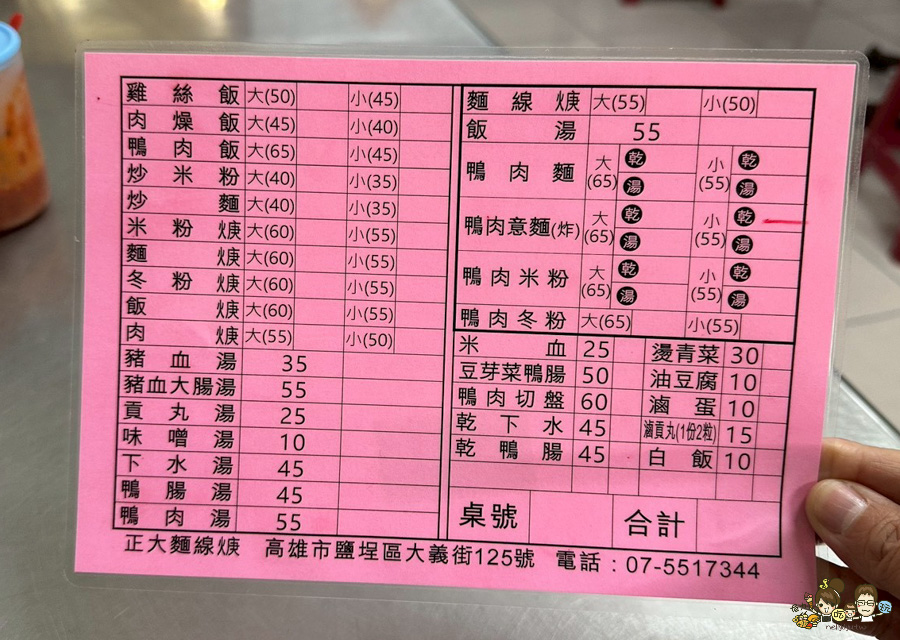 雞絲飯 大(50) 小(45)
肉燥飯 大(45) 小(40)
鴨肉飯 大(65) 小(45)
炒米粉 大(40) 小(35)
炒麵 大(40) 小(35)
米粉焿 大(60) 小(55)
麵焿 大(60) 小(55)
冬粉焿 大(60) 小(55)
飯焿 大(60) 小(55)
肉焿 大(55) 小(50)
豬血湯 35
豬血大腸湯 55
貢丸湯 25
味噌湯 10
下水湯 45
鴨腸湯 45
鴨肉湯 55
麵線焿 大(55) 小(50)
飯湯 55
鴨肉麵 大(65) 乾 湯 小(55) 乾 湯
鴨肉意麵(炸) 大(65) 乾 湯 小(55) 乾 湯
鴨肉米粉 大(65) 乾 湯 小(55) 乾 湯
鴨肉冬粉 大(65) 小(55)
米血 25 燙青菜 30
豆芽菜鴨腸 50 油豆腐 10
鴨肉切盤 60 滷蛋 10
乾下水 45 滷貢丸(1份2粒) 15
乾鴨腸 45 白飯 10
桌號 合計
正大麵線焿 高雄市鹽埕區大義街125號 電話：07-5517344